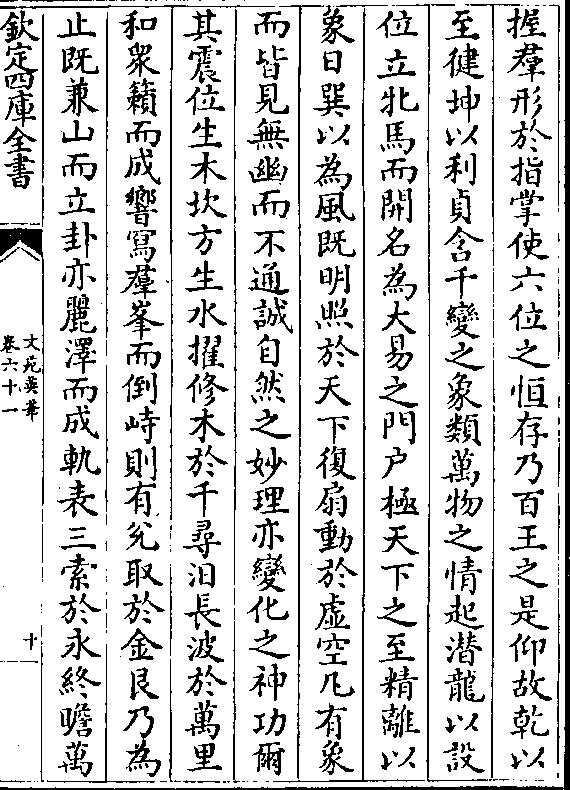 握羣形於指掌使六位之恒存乃百王之是仰故乾以
至健坤以利貞含千變之象類萬物之情起潛龍以設
位立牝馬而開名為大易之門户極天下之至精離以
象日巽以為風既明照於天下復扇動於虛空凡有象
而皆見無幽而不通誠自然之妙理亦變化之神功爾
其震位生木坎方生水擢修木於千尋汩長波於萬里
和衆籟而成響寫羣峯而倒峙則有兊取於金艮乃為
止既兼山而立卦亦麗澤而成軌表三索於永終瞻萬
欽定四庫全書
文苑英華
卷六十一
十